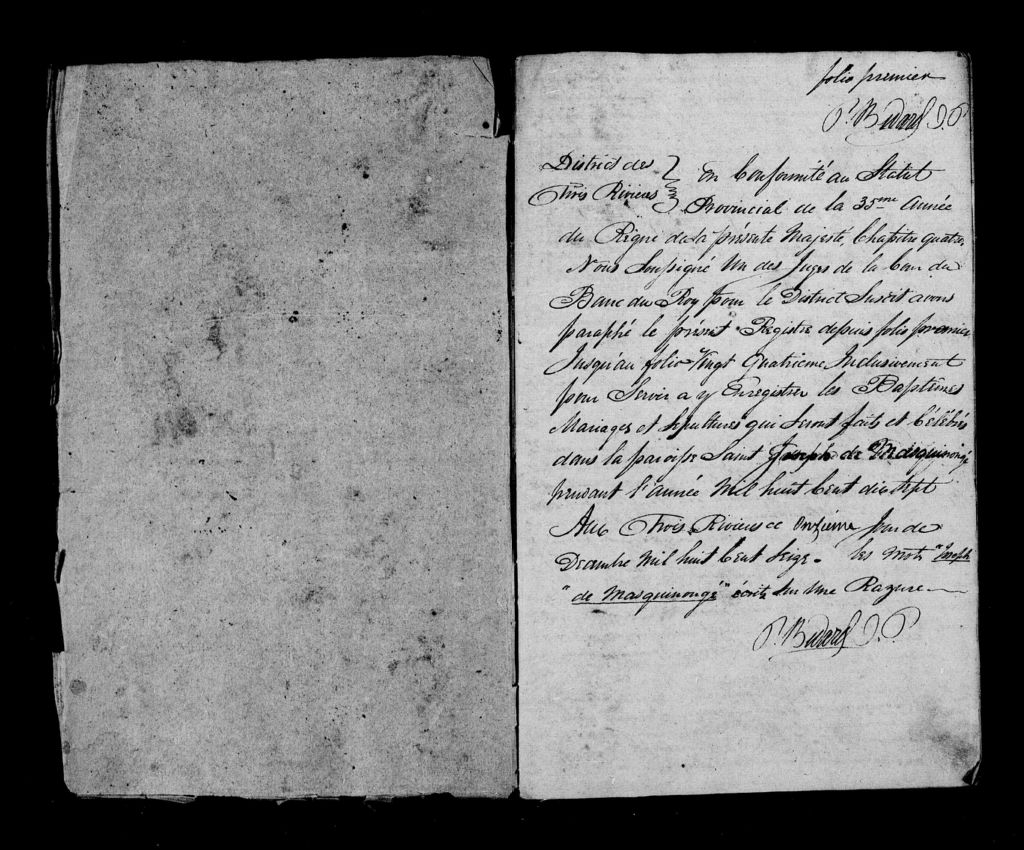 folio premier
P. Bedard J. P
District des
Trois Rivieres
En Conformité au Statut
Provincial de la 35me Année
du Règne de la présente Majesté, Chapitre quatre,
Nous Soussigné Un des Juges de la Cour du
Banc du Roy pour le District Susdit avons
paraphé le présent Registre depuis folio premier
Jusqu'au folio Vingt Quatrieme Inclusivement
pour Servir a y Enregistrer les Baptêmes
Mariages et Sépultures qui Seront faits et Célébrés
dans la paroisse Saint Joseph de Masquinongé
pendant l'année Mil huit Cent dix Sept
Aux Trois Rivieres ce Onzieme Jour de
Decembre Mil huit Cent Seize. les Mots "Joseph
"de Masquinongé" écrits Sur Une Razure
P. Bedard J. P